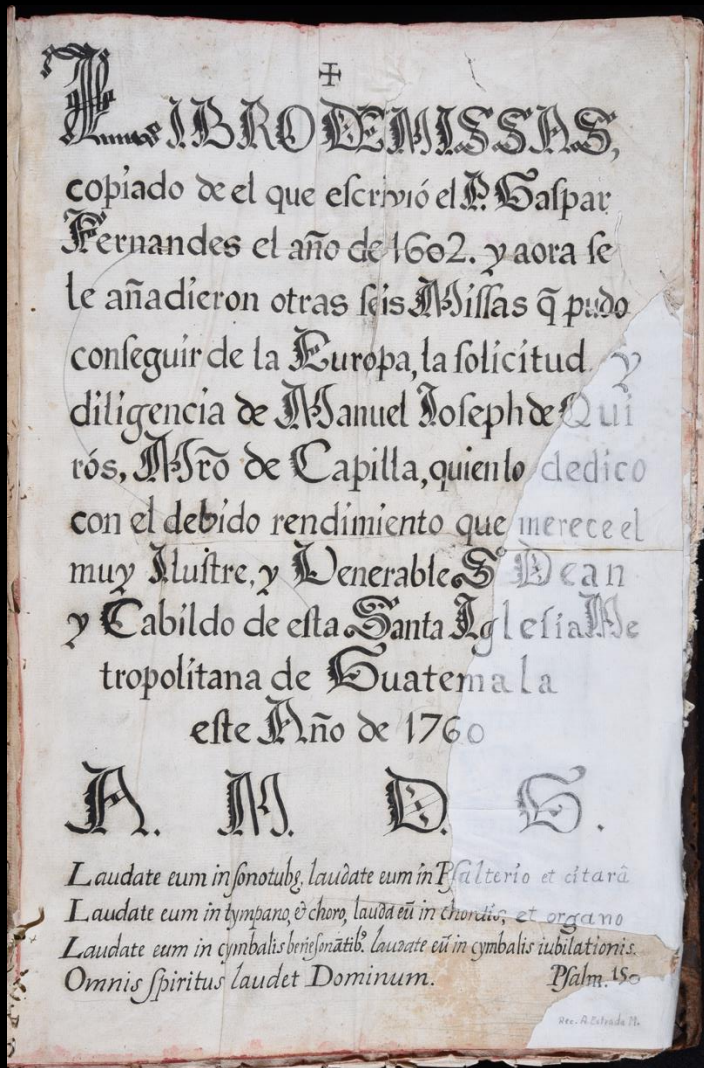 ✠
LIBRO DE MISSAS,
copiado de el que escrivió el P. Gaspar
Fernandes el año de 1602. y aora se
le añadieron otras seis Missas q̃ pudo
conseguir de la Europa, la solicitud y
diligencia de Manuel Joseph de Qui
rós, Mrõ de Capilla, quien lo dedico
con el debido rendimiento que merece el
muy Ilustre, y Venerable Sr Dean
y Cabildo de esta Santa Iglesia Me
tropolitana de Guatemala
este Año de 1760
A. M. D. G.
Laudate eum in sono tubę, laudate eum in Psalterio et citarâ
Laudate eum in tympano, & choro, laudā eũ in chordis, et organo
Laudate eum in cymbalis benesonātib9. laudate eũ in cymbalis iubilationis.
Omnis spiritus laudet Dominum. Psalm. 150
Res. A. Estrada M.